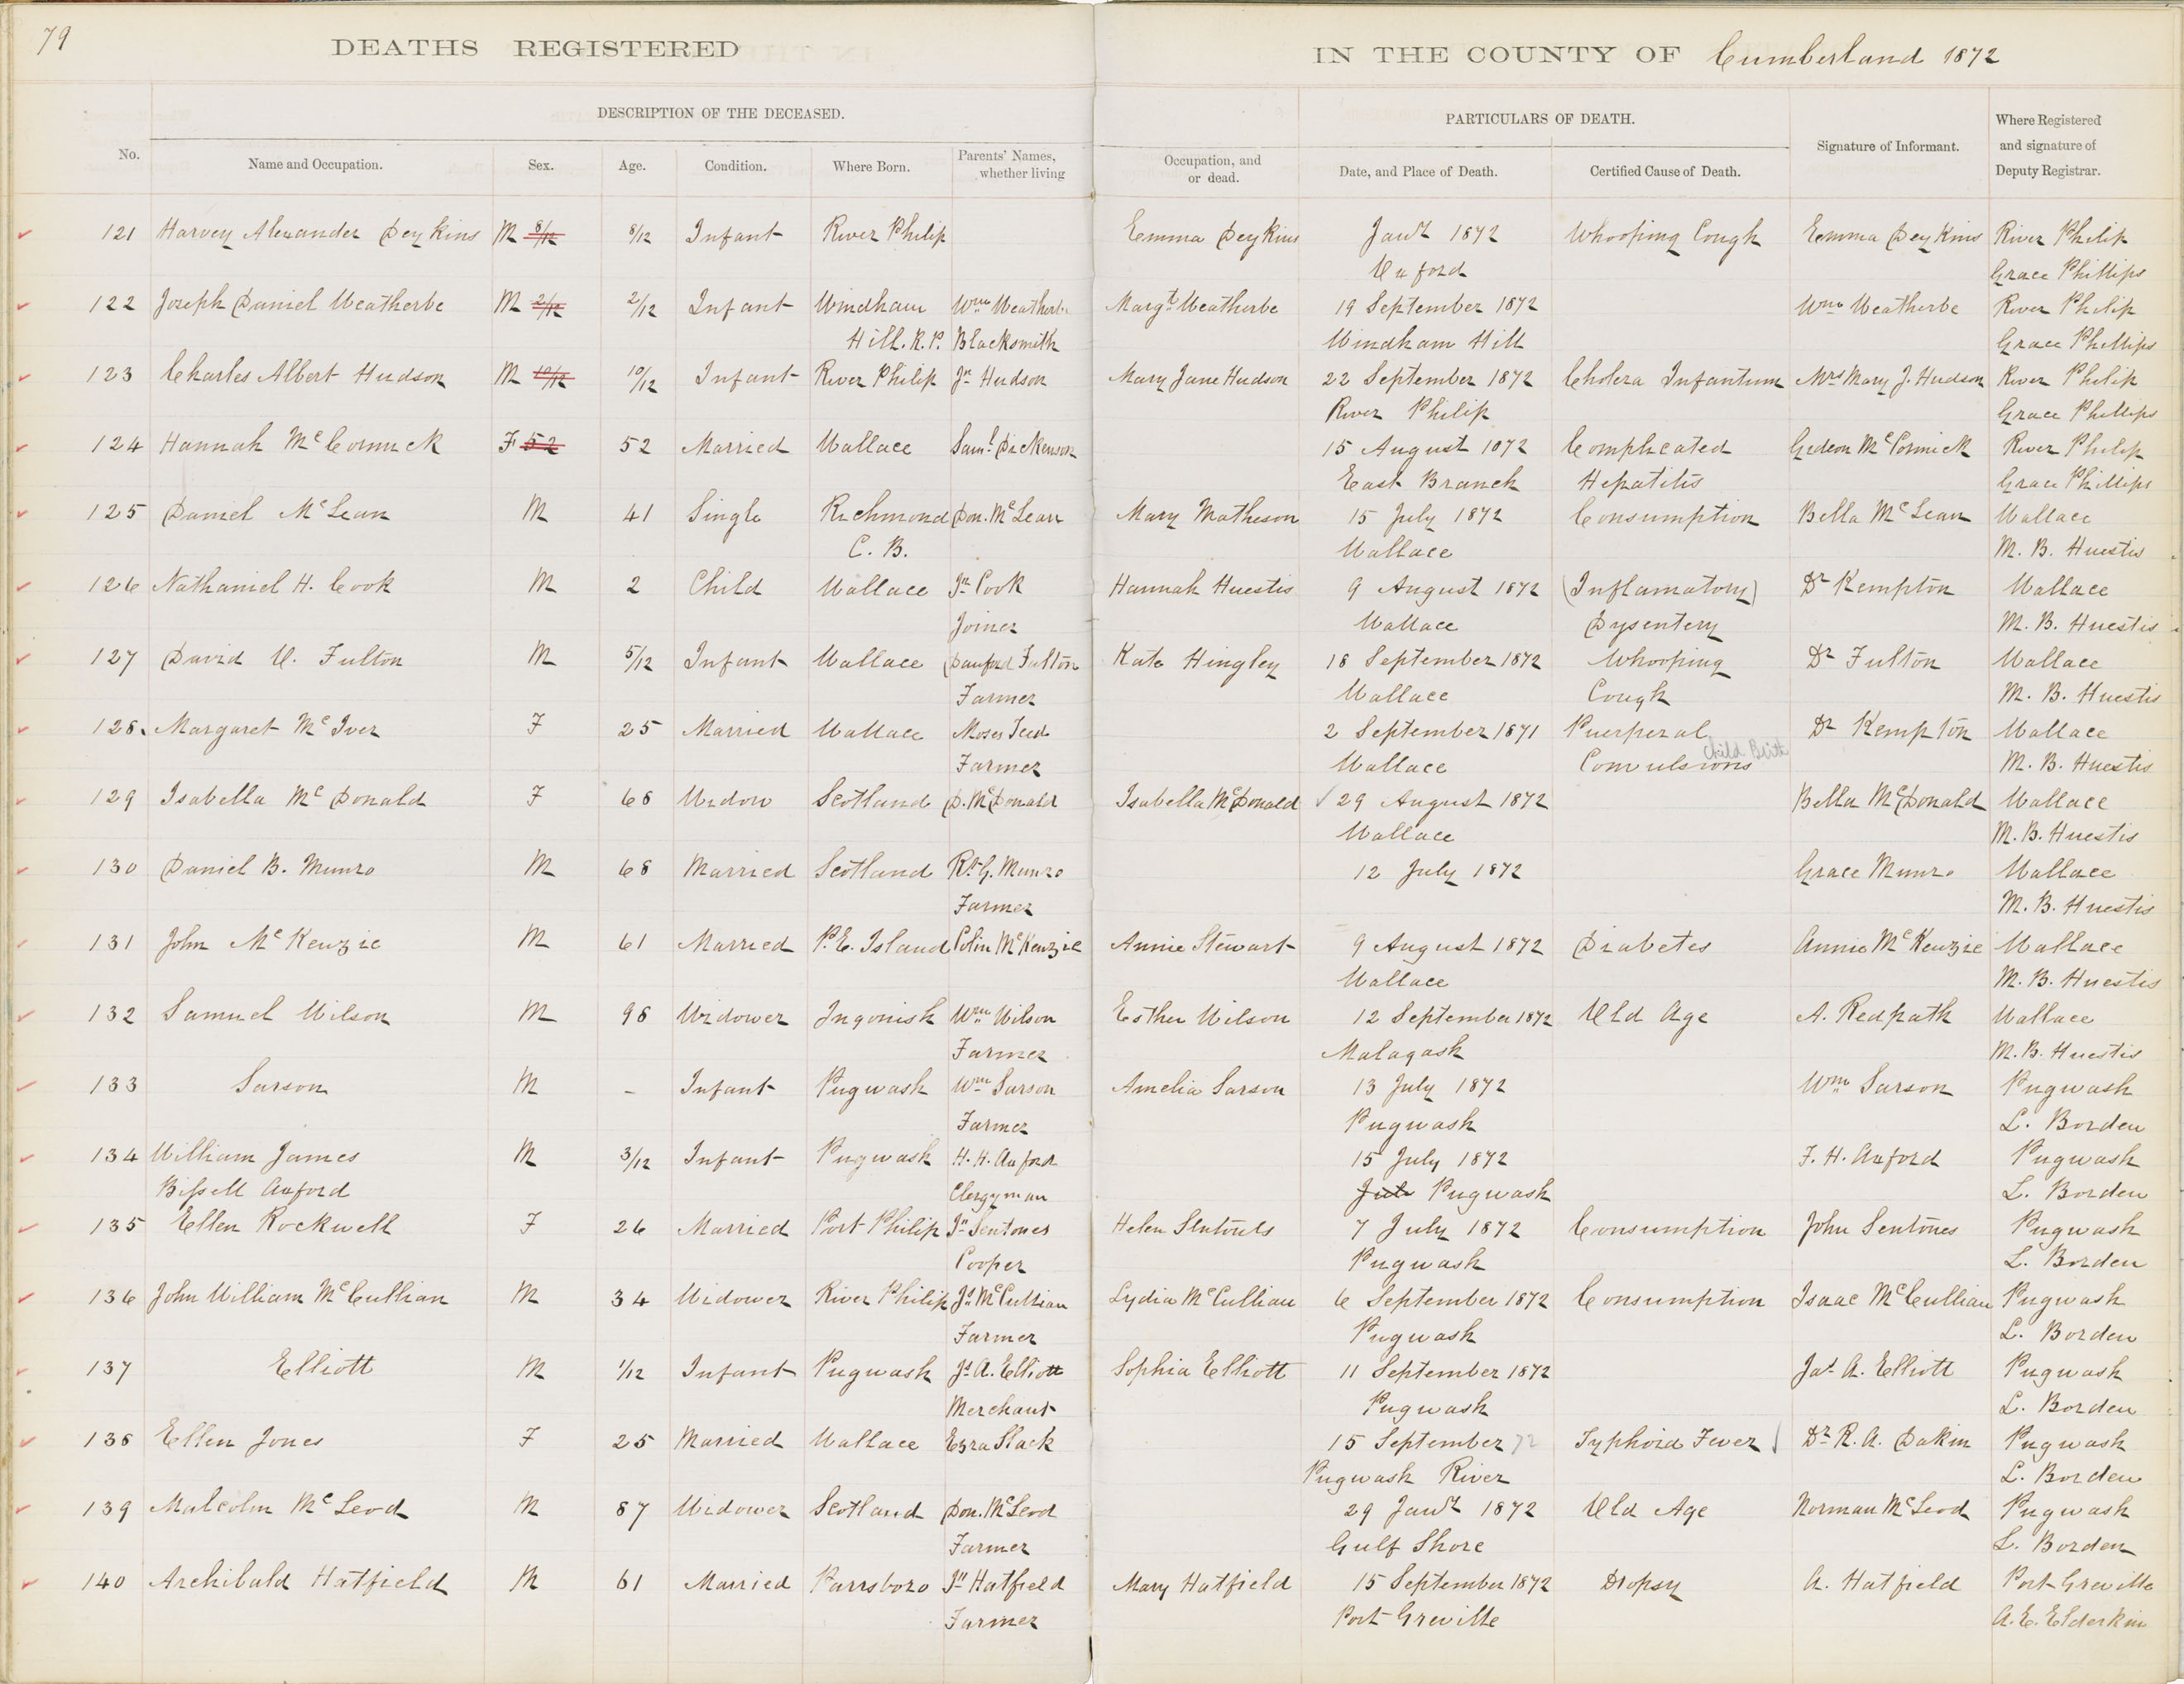 79
DEATHS REGISTERED IN THE COUNTY OF Cumberland 1872
DESCRIPTION OF THE DECEASED. PARTICULARS OF DEATH. Where Registered and signature of Deputy Registrar.
No. Name and Occupation. Sex. Age. Condition. Where Born. Parents' Names, whether living Occupation, and or dead. Date, and Place of Death. Certified Cause of Death. Signature of Informant.
121 Harvey Alexander Deykins M 8/12 8/12 Infant River Philip Emma Deykins Jany 1872 Whooping Cough Emma Deykins River Philip
Oxford Grace Phillips
122 Joseph Daniel Weatherbe M 2/12 2/12 Infant Windham Wm Weatherbe Margt Weatherbe 19 September 1872 Wm Weatherbe River Philip
Hill. R.P. Blacksmith Windham Hill Grace Phillips
123 Charles Albert Hudson M 10/12 10/12 Infant River Philip Jn Hudson Mary Jane Hudson 22 September 1872 Cholera Infantum Mrs Mary J. Hudson River Philip
River Philip Grace Phillips
124 Hannah McCormick F 52 52 Married Wallace Saml Dickenson 15 August 1872 Complicated Gideon McCormick River Philip
East Branch Hepatitis Grace Phillips
125 Daniel McLean M 41 Single Richmond Don. McLean Mary Matheson 15 July 1872 Consumption Bella McLean Wallace
C. B. Wallace M. B. Huestis
126 Nathaniel H. Cook M 2 Child Wallace Jn Cook Hannah Huestis 9 August 1872 (Inflamatory) Dr Kempton Wallace
Joiner Wallace Dysentery M. B. Huestis
127 David O. Fulton M 5/12 Infant Wallace Danford Fulton Kate Hingley 18 September 1872 Whooping Dr Fulton Wallace
Farmer Wallace Cough M. B. Huestis
128. Margaret McIver F 25 Married Wallace Moses Teed 2 September 1871 Puerperal Dr Kempton Wallace
Farmer Wallace Convulsions Child Birth M. B. Huestis
129 Isabella McDonald F 68 Widow Scotland D. McDonald Isabella McDonald 29 August 1872 Bella McDonald Wallace
Wallace M. B. Huestis
130 Daniel B. Munro M 68 Married Scotland Rt G. Munro 12 July 1872 Grace Munro Wallace
Farmer M. B. Huestis
131 John McKenzie M 61 Married P. E. Island Colin McKenzie Annie Stewart 9 August 1872 Diabetes Annie McKenzie Wallace
Wallace M. B. Huestis
132 Samuel Wilson M 98 Widower Ingonish Wm Wilson Esther Wilson 12 September 1872 Old Age A. Redpath Wallace
Farmer Malagash M. B. Huestis
133 Sarson M - Infant Pugwash Wm Sarson Amelia Sarson 13 July 1872 Wm Sarson Pugwash
Farmer Pugwash L. Borden
134 William James M 3/12 Infant Pugwash H. H. Axford 15 July 1872 F. H. Axford Pugwash
Bissell Axford Clergyman July Pugwash L. Borden
135 Ellen Rockwell F 26 Married Port Philip Jn Sentones Helen Sentones 7 July 1872 Consumption John Sentones Pugwash
Cooper Pugwash L. Borden
136 John William McCullian M 34 Widower River Philip Js McCullian Lydia McCullian 6 September 1872 Consumption Isaac McCullian Pugwash
Farmer Pugwash L. Borden
137 Elliott M 1/12 Infant Pugwash Js A. Elliott Sophia Elliott 11 September 1872 Jas A. Elliott Pugwash
Merchant Pugwash L. Borden
138 Ellen Jones F 25 Married Wallace Ezra Slack 15 September 72 Typhoid Fever Dr R. A. Dakin Pugwash
Pugwash River L. Borden
139 Malcolm McLeod M 87 Widower Scotland Don. McLeod 29 Jany 1872 Old Age Norman McLeod Pugwash
Farmer Gulf Shore L. Borden
140 Archibald Hatfield M 61 Married Parrsboro Jn Hatfield Mary Hatfield 15 September 1872 Dropsy A. Hatfield Port Greville
Farmer Port Greville A. E. Elderkin